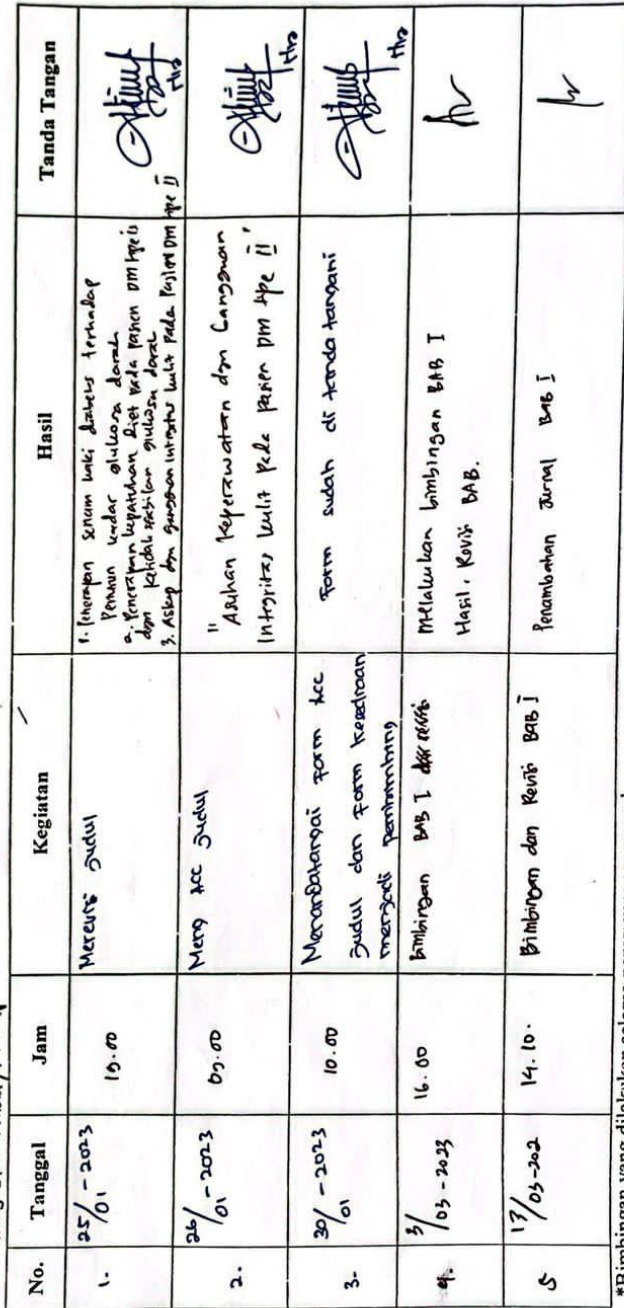 No. Tanggal Jam Kegiatan Hasil Tanda Tangan
1. 25/01-2023 19.00 Merevisi judul
1. Penerapan senam kaki diabetes terhadap
Penurun kadar glukosa darah
2. Penerapan kepatuhan diet pada pasien DM tipe II
dgn ketidakstabilan glukosa darah
3. Askep dgn gangguan integritas kulit pada Pasien DM tipe II
Hira
2. 26/01-2023 09.00 Meng Acc judul
"Asuhan Keperawatan dgn Gangguan
Integritas kulit pada pasien DM tipe II"
Hira
3. 30/01-2023 10.00 Menandatangai Form Acc
judul dan Form Kesediaan
menjadi pembimbing
Form sudah di tanda tangani
Hira
4. 3/03-2023 16.00 bimbingan BAB I
melakukan bimbingan BAB I
Hasil, Revisi BAB.
5 17/03-202 14.10. Bimbingan dan Revisi BAB I
Penambahan Jurnal BAB I
*Bimbingan yang dilakukan selama